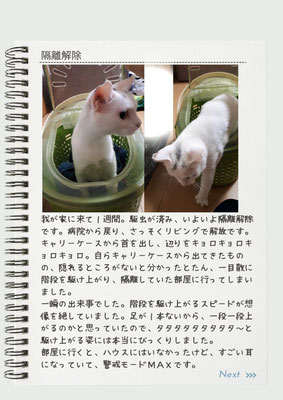 隔離解除
我が家に来て1週間。駆虫が済み、いよいよ隔離解除
です。病院から戻り、さっそくリビングで解放です。
キャリーケースから首を出し、辺りをキョロキョロキ
ョロキョロ。自らキャリーケースから出てきたもの
の、隠れるところがないと分かったとたん、一目散に
階段を駆け上がり、隔離していた部屋に行ってしまい
ました。
一瞬の出来事でした。階段を駆け上がるスピードが想
像を絶していました。足が1本ないから、一段一段上
がるのかと思っていたので、タタタタタタタタタ～と
駆け上がる姿には本当にびっくりしました。
部屋に行くと、ハウスにはいなかったけど、すごい耳
になっていて、警戒モードMAXです。
Next >>>